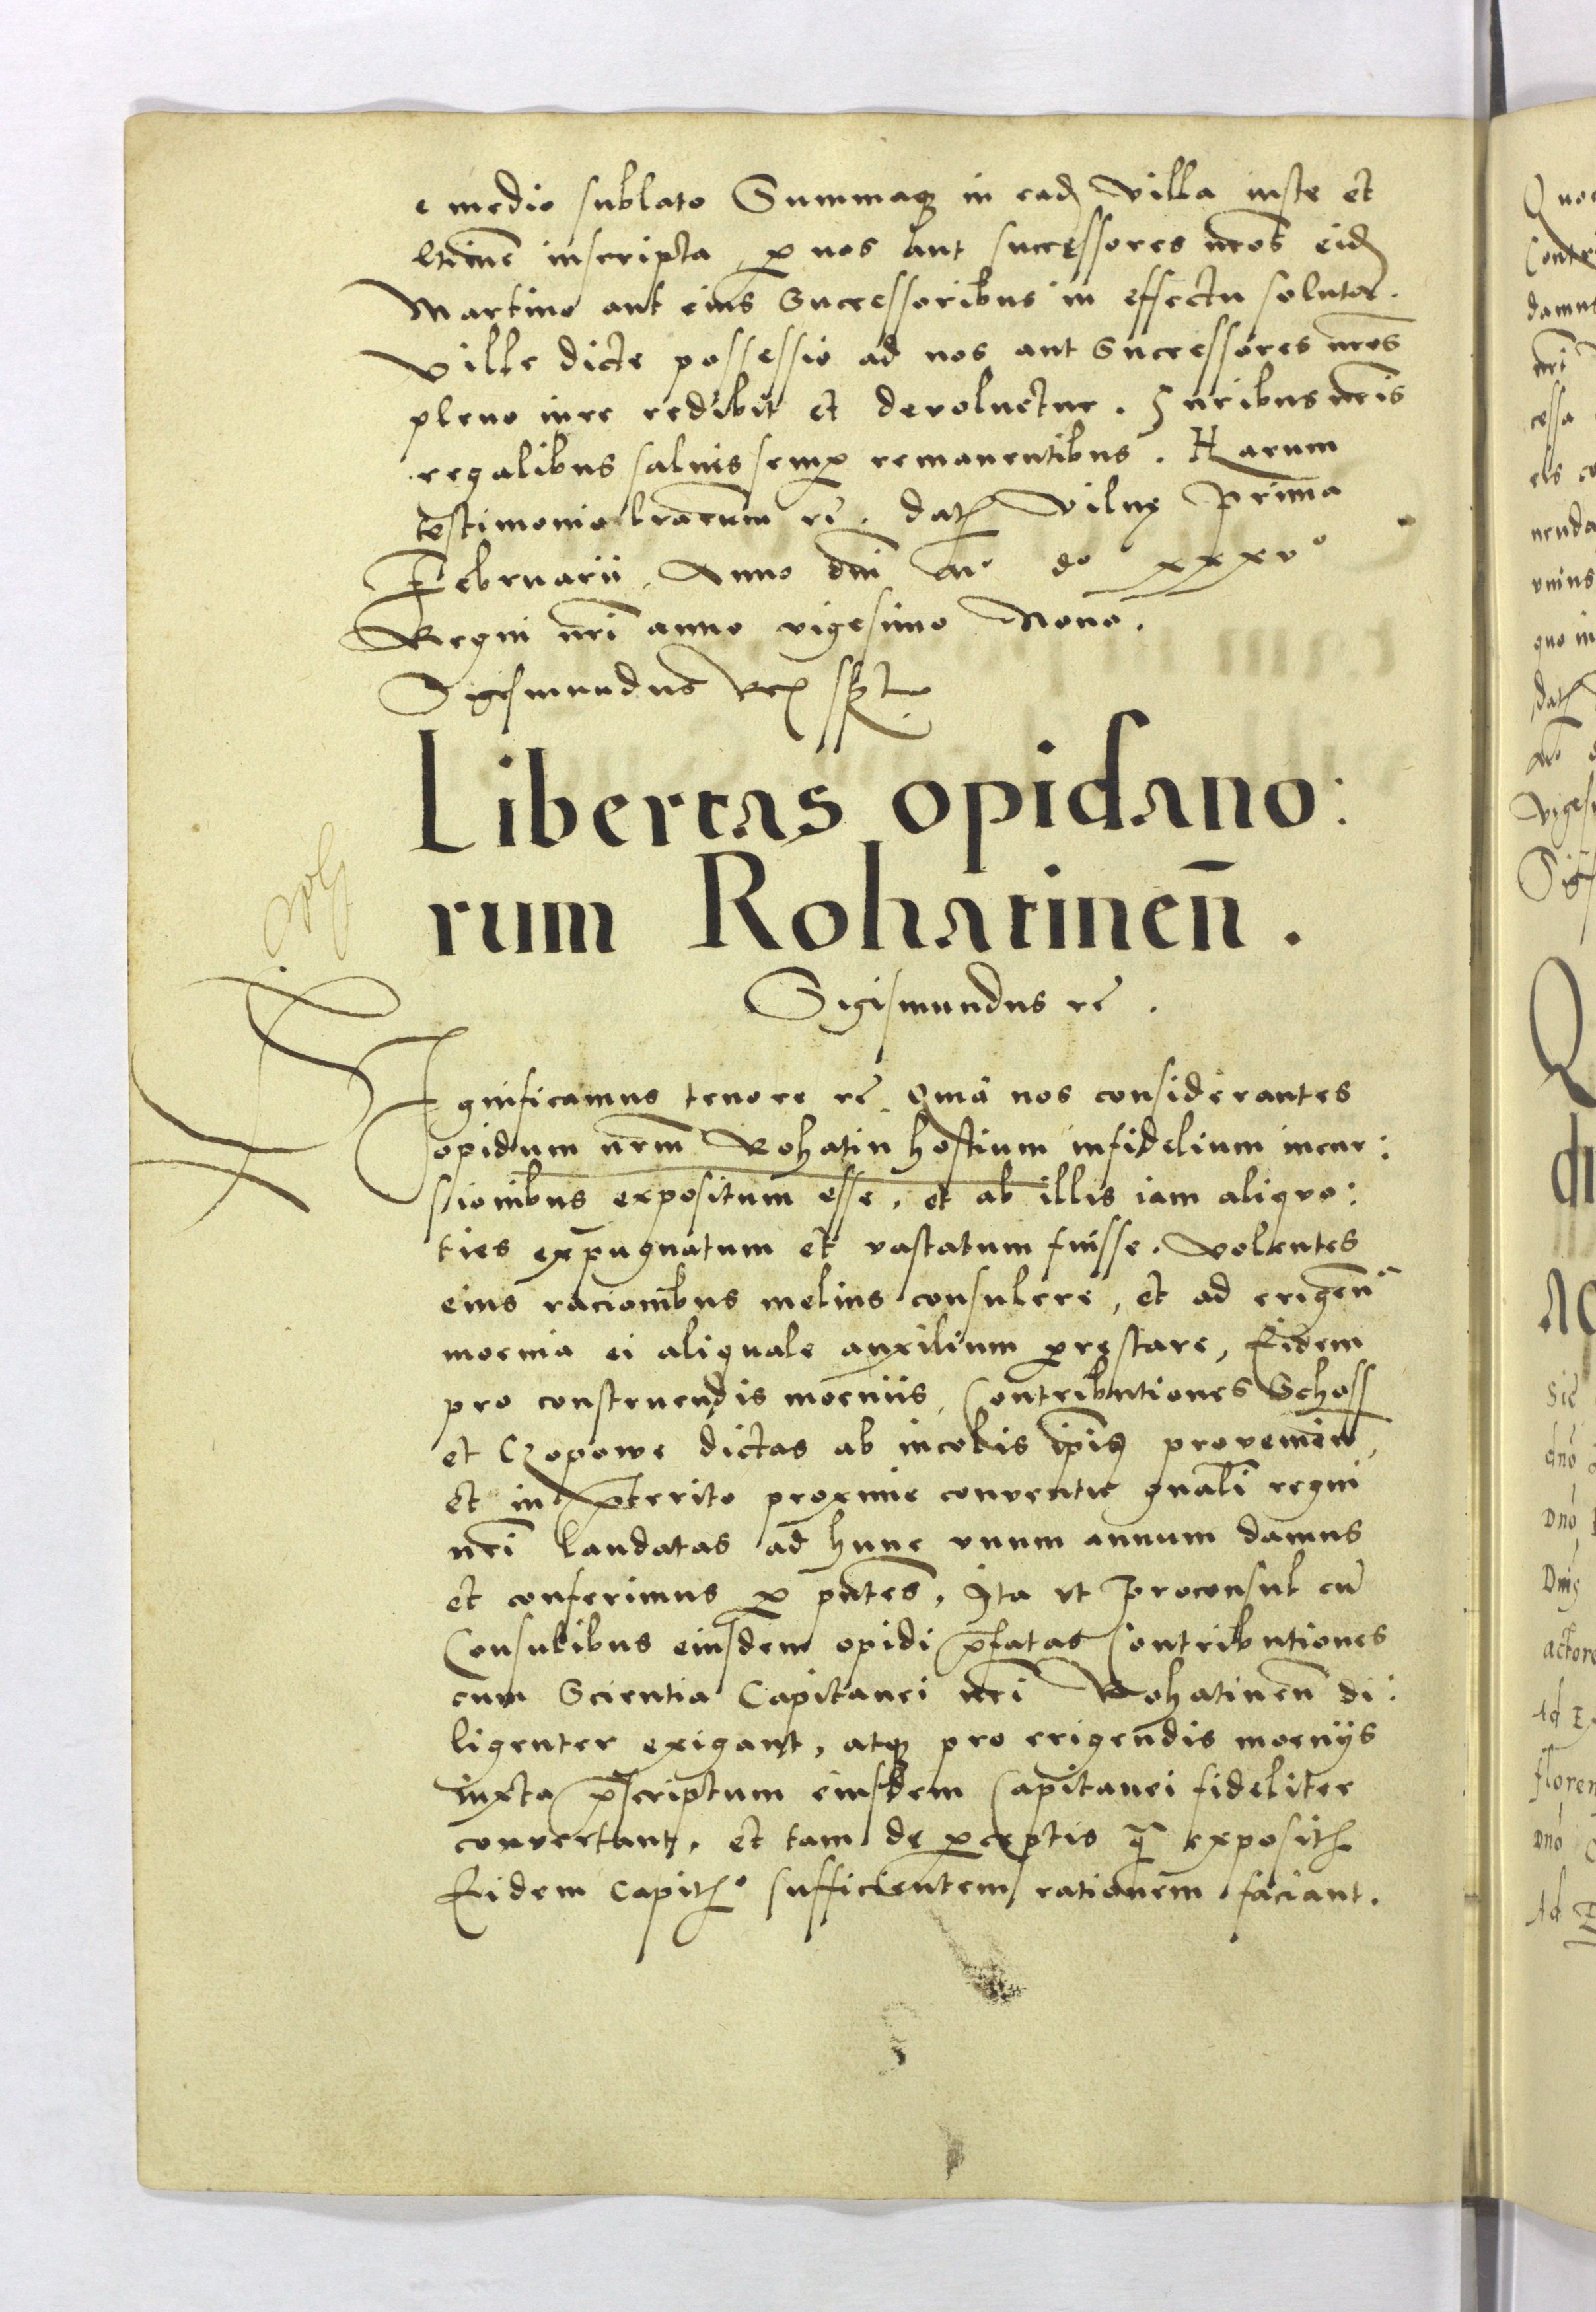 e medio sublato Summaq; in ead villa iuste et
ltime inscripta, p nos aut successores nros eid
Martino aut eius Successoribus in effectu soluta.
ville dicte possessio ad nos aut Successores nros
pleno iure redibit et devoluetur. Juribus nris
regalibus saluis semp remanentibus. Harum
testimonio lrarum rc. dat Vilnę prima
Februarii, Anno dni Mo do xxxvo
Regni nri anno vigesimo Nono.
Sigismundus Rex sst
Libertas opidano:
rum Rohatinen̄.
Sigismundus rc.
Significamus tenore rc. Quia nos considerantes
opidum nrm Rohatin hostium infidelium incur:
ssionibus expositum esse, et ab illis iam aliquo:
ties expugnatum et vastatum fuisse. Volentes
eius racionibus melius consulere, et ad erigen̄
moenia ei aliquale auxilium pręstare, Eidem
pro construendis moeniis, Contributiones Schoss
et Czopowe dictas ab incolis ipius provenien̄,
et in pterito proxime conventu gnali regni
nri laudatas ad hunc vnum annum damus
et conferimus p pntes, Ita vt proconsul cu
Consulibus eiusdem opidi pfatas Contributiones
cum Scientia Capitanei nri Rohatinen̄ di:
ligenter exigant, atq; pro erigendis moenijs
iuxta pscriptum eiusdem Capitanei fideliter
convertant, et tam de pceptis q̄ exposit
Eidem Capito sufficientem rationem faciant.